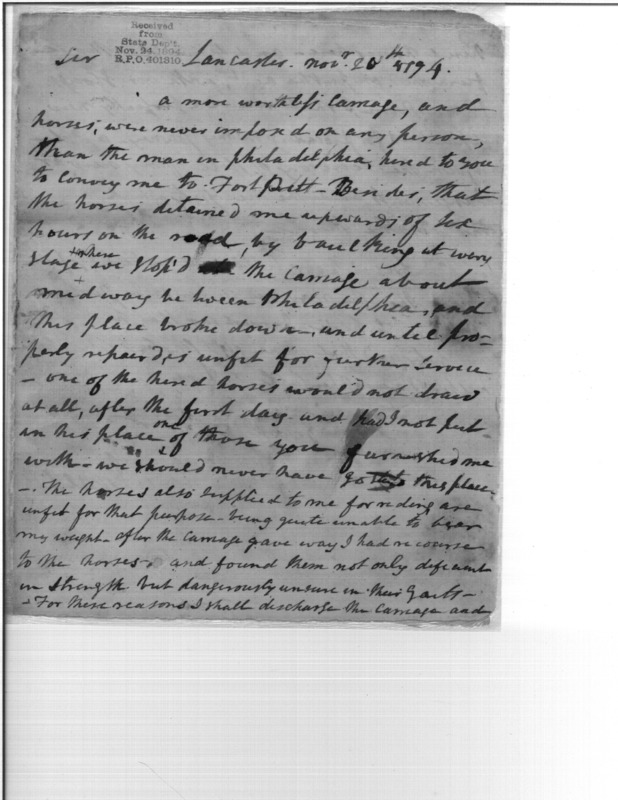 Received
from
State Dep't.
Nov. 24, 1894
R.P.O. 401310
Sir Lancaster. novr. 20th 1794.
a more worthless Carriage, and
horses, were never imposed on any person,
than the man in philadelphia, hired to you
to convey me to Fort Pitt - Besides, that
the horses detained me upwards of six
hours on the road, by baulking at every
stage where we stop'd the Carriage about
midway between Philadelphia, and
this place broke down - and until pro-
perly repaird, is unfit for further service
- one of the hired horses would not draw
at all, after the first day - and had I not put
in his place one of those you furnished me
with - we should never have got to this place -
- The horses also supplied to me for riding are
unfit for that purpose - being quite unable to bear
my weight - after the Carriage gave way I had recourse
to the horses, and found them not only deficient
in strength but dangerously unsure in their Gaits -
- For these reasons I shall discharge the Carriage and